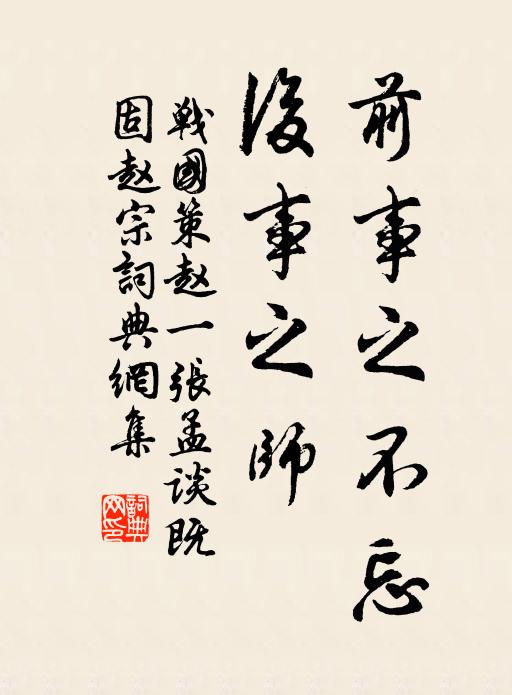 前事之不忘
後事之师
戰國策赵一張孟谈既
固赵宗詞典網集
詞典網印